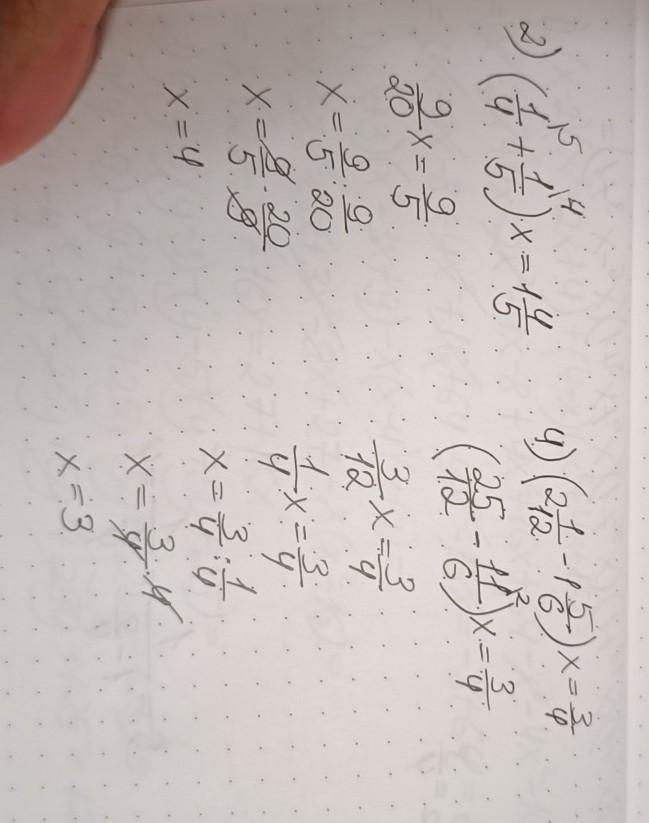 2) (1/4 \5 + 1/5 \4) x = 1 4/5
9/20 x = 9/5
x = 9/5 : 9/20
x = 9/5 · 20/9
x = 4
4) (2 1/12 - 1 5/6) x = 3/4
(25/12 - 11/6 \2) x = 3/4
3/12 x = 3/4
1/4 x = 3/4
x = 3/4 : 1/4
x = 3/4 · 4
x = 3